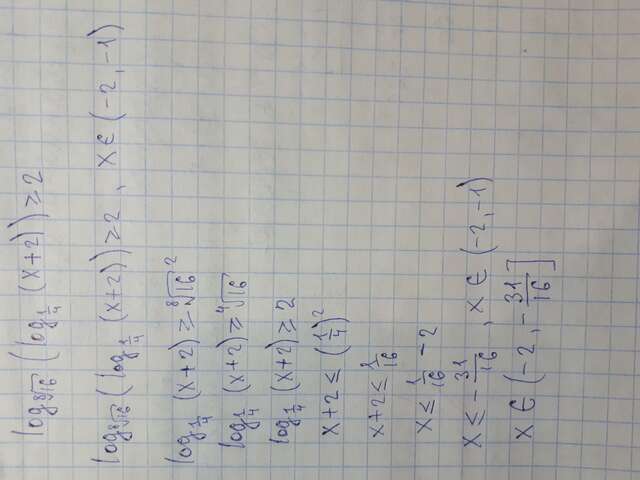 log_{\sqrt[8]{16}} (log_{\frac{1}{4}} (x+2)) ≥ 2
log_{\sqrt[8]{16}} (log_{\frac{1}{4}} (x+2)) ≥ 2 , x ∈ (-2, -1)
log_{\frac{1}{4}} (x+2) ≥ \sqrt[8]{16}^2
log_{\frac{1}{4}} (x+2) ≥ \sqrt[4]{16}
log_{\frac{1}{4}} (x+2) ≥ 2
x+2 ≤ (\frac{1}{4})^2
x+2 ≤ \frac{1}{16}
x ≤ \frac{1}{16} - 2
x ≤ -\frac{31}{16} , x ∈ (-2, -1)
x ∈ (-2, -\frac{31}{16}]